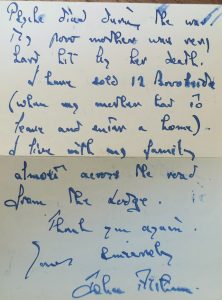 died during the war
my poor mother was very
hard hit by her death.
I have sold 12 Brookside
(when my mother had to
leave and enter a home).
I live with my family
almost across the road
from the Lodge.
Thank you again.
Yours sincerely
John